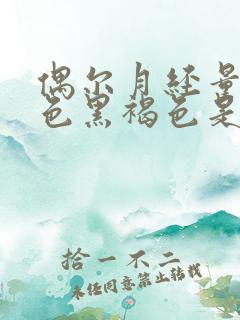 偶尔月经量
色黑褐色是
拾一不二
未经同意禁止转载